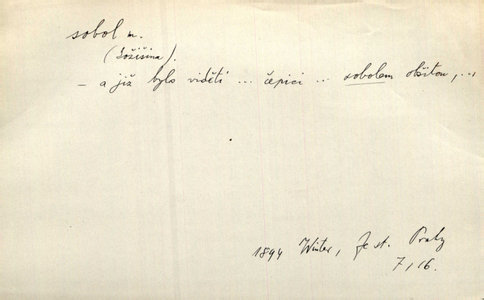 sobol m.
(kožišina).
– a již bylo viděti ... čepici ... sobolem obšitou, ...
1894 Winter, Ze st. Prahy
7, 16.